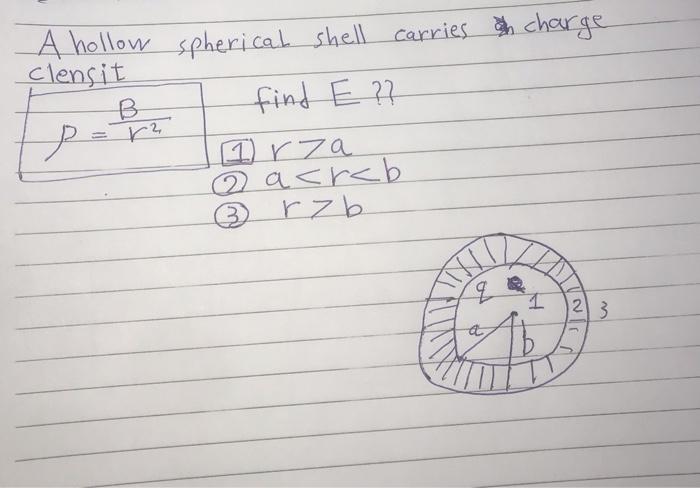 A hollow spherical shell carries charge
clensit
ρ = B / r²
find E ??
1 r > a
2 a < r < b
3 r > b
q
1
2
3
a
b